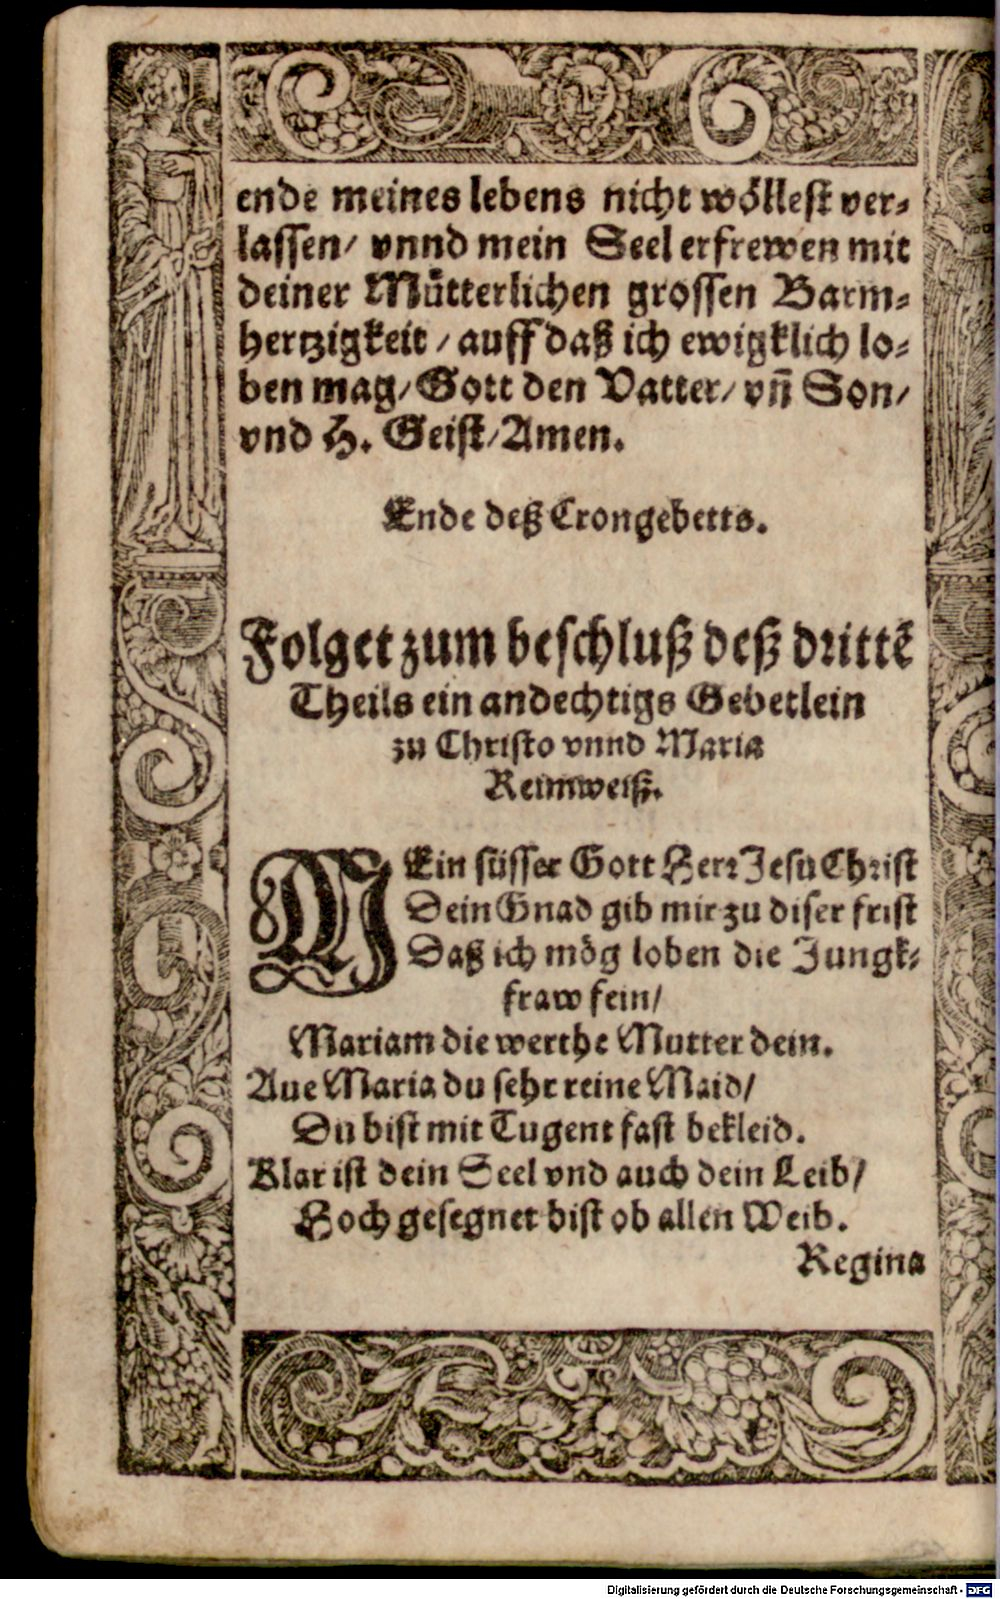 ende meines lebens nicht wöllest ver-
lassen/ vnnd mein Seel erfrewen mit
deiner Mütterlichen grossen Barm-
hertzigkeit/ auff daß ich ewigklich lo-
ben mag/ Gott den Vatter/ vn̄ Son/
vnd H. Geist/ Amen.
Ende deß Crongebetts.
Folget zum beschluß deß drittē
Theils ein andechtigs Gebetlein
zu Christo vnnd Maria
Reimweiß.
MEin süsser Gott Herr Jesu Christ
Dein Gnad gib mir zu diser frist
Daß ich mög loben die Jungk-
fraw fein/
Mariam die werthe Mutter dein.
Aue Maria du sehr reine Maid/
Du bist mit Tugent fast bekleid.
Klar ist dein Seel vnd auch dein Leib/
Hoch gesegnet bist ob allen Weib.
Regina
Digitalisierung gefördert durch die Deutsche Forschungsgemeinschaft - DFG